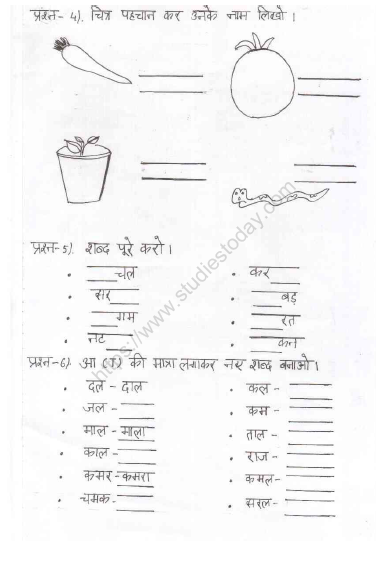 प्रश्न- 4). चित्र पहचान कर उनके नाम लिखो ।
प्रश्न-5). शब्द पूरे करो ।
• ____चल • कर____
• सर____ • ____बड़
• ____गम • ____रत
• नट____ • ____कन
प्रश्न-6) आ (ा) की मात्रा लगाकर नए शब्द बनाओ ।
• दल - दाल • कल - ____
• जल - ____ • कम - ____
• माल - माला • ताल - ____
• काल - ____ • राज - ____
• कमर - कमरा • कमल - ____
• चमक - ____ • सरल - ____
https://www.studiestoday.com